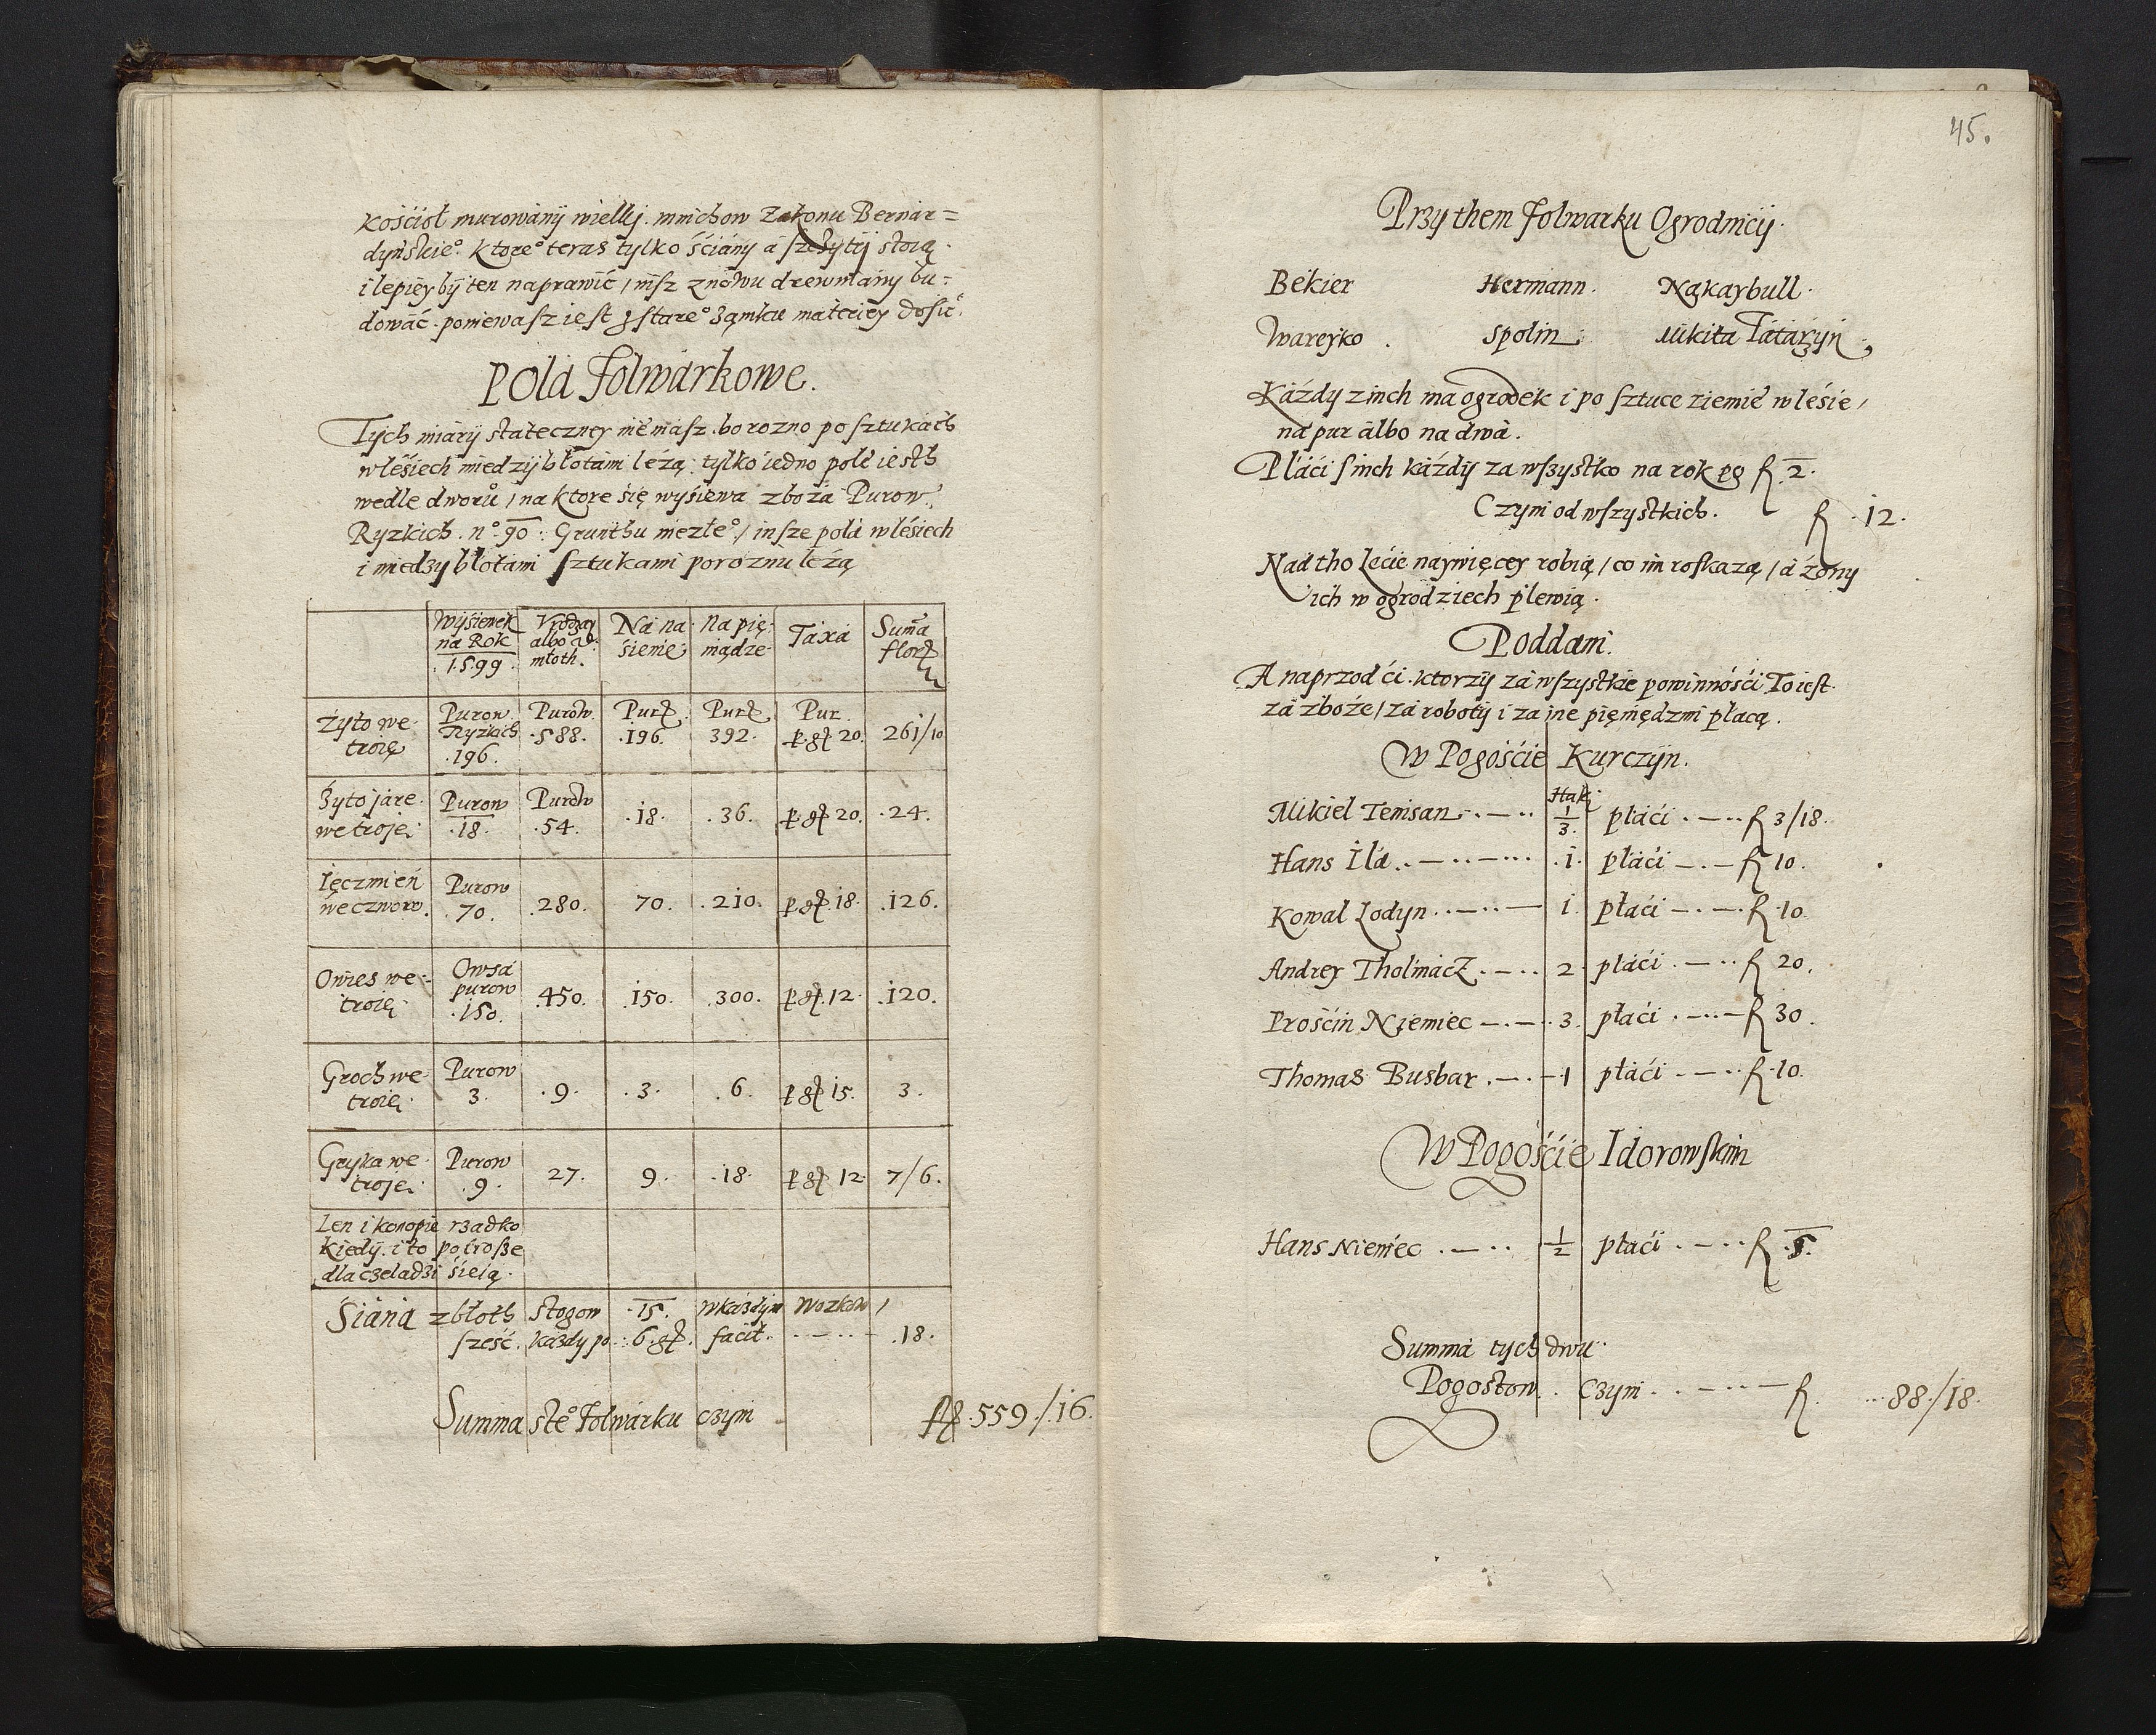 kośćiol murowánÿ wielkj. mnichow Zakonu Bernár=
dÿńskie° ktore° teras tylko śćiány á szczÿtÿ stoią.
i lepieÿ bÿ ten naprawić / nisz znowu drewniány bu=
dowáć. poniewasz iest z stare° Zamku materiey dosić.
Polá Folwárkowe.
Tÿch miárÿ státeczney niemász. bo rozno po sztukách
w lésiech miedzÿ błotámi leżą: tylko iedno polé iesth
wedle dworů / na ktore się wÿsiewa zboża Purow
Ryzkich. n°. 90: Grunthu niezłe° / insze polá w lésiech
i miedzy błotámi sztukami poroznu leżą
Wÿsiewek na Rok 1599. Vrodzay albo w młoth. Ná nasieme Na pieniądze Táxá Suma flor
Zyto we troię Purow Ryzkich .196. Purow .588. Pur .196. Pur 392. Pur. p. g 20. 261/10
Żyto járe we troje Purow .18. Purow .54. .18. .36. p. g 20. .24.
Ięczmień we czworo. Purow 70. .280. 70. .210. p. g. 18. .126.
Owies we troię Owsá purow .150. .450. .150. .300. p. g. 12. .120.
Groch we troię Purow 3. .9. .3. .6. p g 15. 3.
Gryka we troje Purow .9. 27. 9. .18. p g 12. 7/6.
Len i konopie rzadko
kiedÿ. i to potrosze
dla czeladzi śieią.
Śiáná z błoth stogow .15. w każdym wozkow /
sześć. każdy po 6. g. facit. .18.
Summa ste° Folwárku czyni fl .559./.16.
45.
Przÿ them Folwarku Ogrodnicÿ.
Bekier Hermann. Nakaybull.
Wareyko. Spolin Mikita Tátárzyn
Kázdÿ z nich ma ogrodek i po sztuce ziemie w lésie /
ná pur álbo na dwá.
Płáći s nich káżdÿ za wszystko na rok pg f 2.
Czyni od wszystkich. f .12.
Nád tho Lécie naywięcey robią / co im roskażą / á żony
ich w ogrodziech plewią.
Poddani.
A naprzod ći. ktorzÿ zá wszystkie powinnośći To iest
zá zboże / zá robotÿ i za jne pieniędzmi płacą.
W Pogośćie Kurczÿn.
Haki
Mikiel Temsan 1/3. płáći f 3/18.
Hans Ilá .1. płáći f 10.
Kowal Lodyn 1. płáći f .10.
Andrey Tholmácz 2. płáći f 20.
Prośćin Niemiec 3. płáći f 30.
Thomas Busbar 1 płáći f .10.
W Pogośćie Idorowskim
Hans Niemiec 1/2 płáći f .5.
Summá tych dwu
Pogostow. czyni f. 88./18.